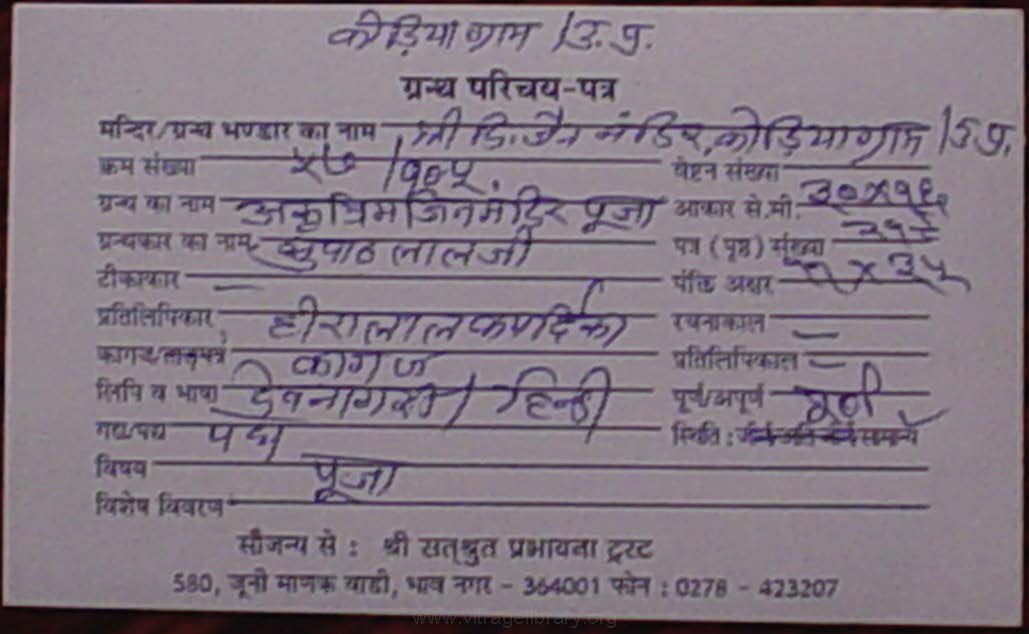 कोड़िया ग्राम /उ.प्र.
ग्रन्थ परिचय-पत्र
मन्दिर/ग्रन्थ भण्डार का नाम श्री दि. जैन मंदिर, कोड़ियाग्राम /उ.प्र.
क्रम संख्या /१०५. वेष्टन संख्या
ग्रन्थ का नाम अकृत्रिम जिनमंदिर पूजा आकार से.मी. ३०x१६
ग्रन्थकार का नाम लालजी पत्र (पृष्ठ) संख्या
टीकाकार — पंक्ति अक्षर x ३५
प्रतिलिपिकार हीरालाल रचनाकाल —
कागज/ताड़पत्र कागज प्रतिलिपिकाल —
लिपि व भाषा देवनागरी / हिन्दी पूर्ण/अपूर्ण पूर्ण
गद्य/पद्य पद्य स्थिति : सामान्य
विषय पूजा
विशेष विवरण
सौजन्य से : श्री सत्श्रुत प्रभावना ट्रस्ट
580, जूनी माणक वाडी, भाव नगर - 364001 फोन : 0278 - 423207
www.vitragelibrary.org